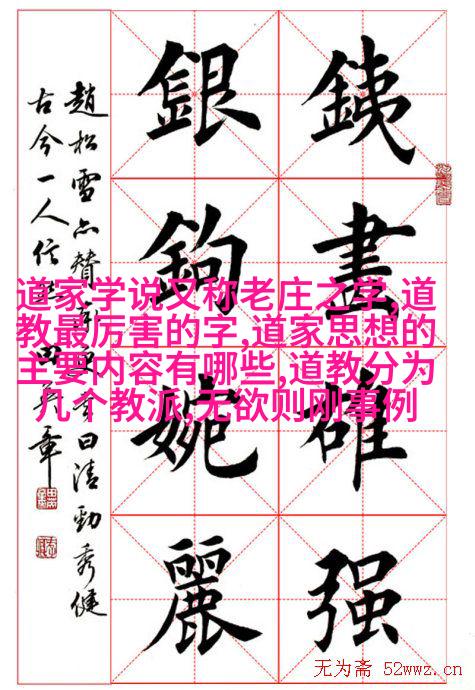 銕畫雄强
銀鉤婉麗
趙松雪亦贊曰清勁秀健
古今一人信田英章
道家学说又称老庄之学,道
教最厉害的字,道家思想的
主要内容有哪些,道教分为
几个教派,无欲则刚事例
无为斋 52wwz.cn